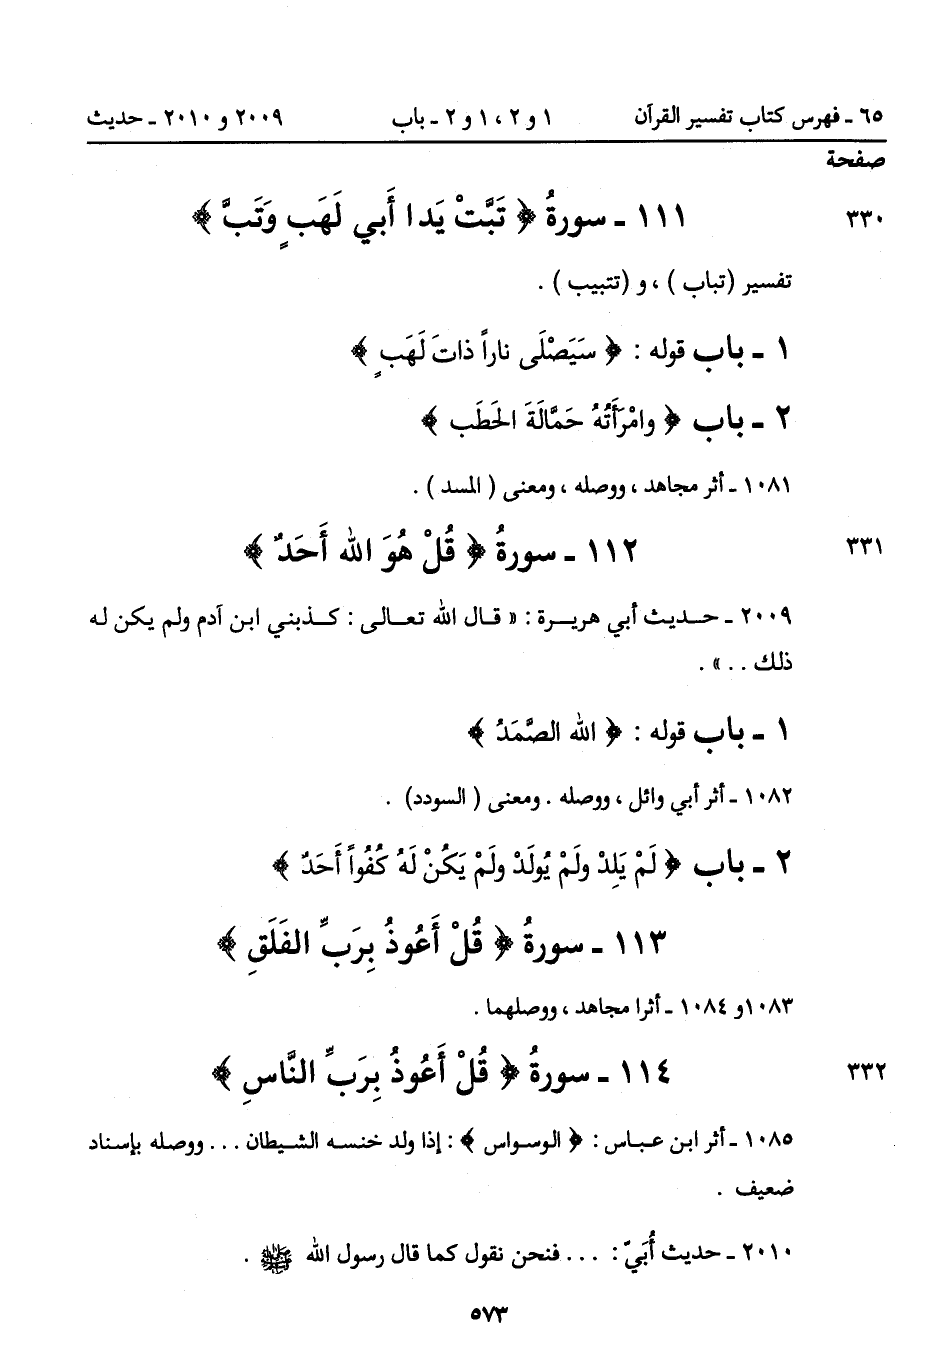 ٦٥ ـ فهرس كتاب تفسير القرآن ١ و ٢ ، ١ و ٢ ـ باب ٢٠٠٩ و ٢٠١٠ ـ حديث
صفحة
٣٣٠ ١١١ ـ سورةُ ﴿ تَبَّتْ يَدا أَبي لَهَبٍ وَتَبَّ ﴾
تفسير (تباب ) ، و (تتبيب ) .
١ ـ باب قوله : ﴿ سَيَصْلَى ناراً ذاتَ لَهَبٍ ﴾
٢ ـ باب ﴿ وامْرَأَتُهُ حَمَّالَةَ الحَطَب ﴾
١٠٨١ ـ أثر مجاهد ، ووصله ، ومعنى ( المسد ) .
٣٣١ ١١٢ ـ سورةُ ﴿ قُلْ هُوَ الله أَحَدٌ ﴾
٢٠٠٩ ـ حـديث أبي هريـرة : « قـال الله تعـالى : كـذبني ابن آدم ولم يكن له
ذلك . . » .
١ ـ باب قوله : ﴿ الله الصَّمَدُ ﴾
١٠٨٢ ـ أثر أبي وائل ، ووصله . ومعنى ( السودد) .
٢ ـ باب ﴿ لَمْ يَلِدْ ولَمْ يُولَدْ ولَمْ يَكُنْ لَهُ كُفُواً أَحَدٌ ﴾
١١٣ ـ سورةُ ﴿ قُلْ أَعُوذُ بِرَبِّ الفَلَقِ ﴾
١٠٨٣و ١٠٨٤ ـ أثرا مجاهد ، ووصلهما .
٣٣٢ ١١٤ ـ سورةُ ﴿ قُلْ أَعُوذُ بِرَبِّ النَّاسِ ﴾
١٠٨٥ ـ أثر ابن عـباس : ﴿ الوسواس ﴾ : إذا ولد خنسه الشيطان . . . ووصله بإسناد
ضعيف .
٢٠١٠ ـ حديث أُبَيّ : . . . فنحن نقول كما قال رسول الله ﷺ .
٥٧٣